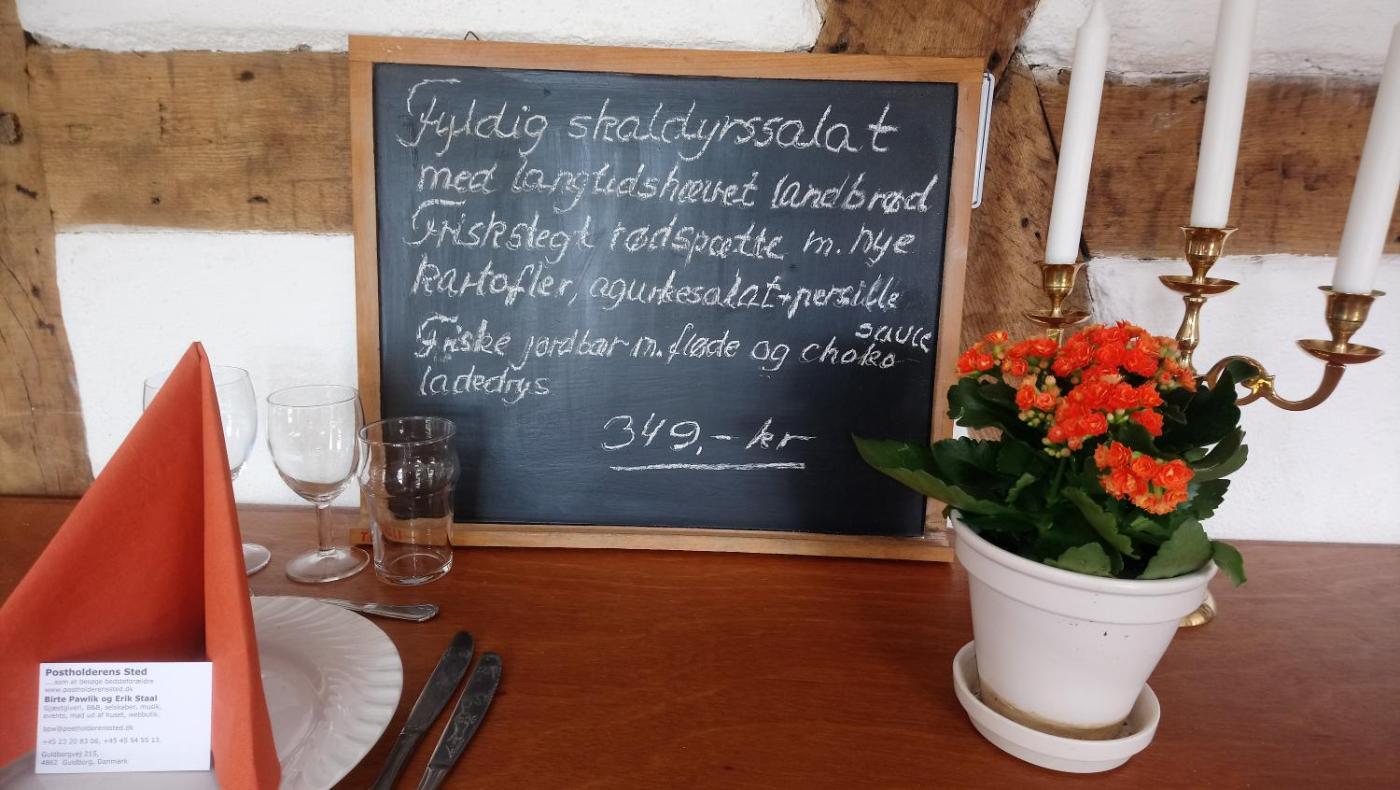 Fyldig skaldyrssalat
med langtidshævet landbrød
Friskstegt rødspætte m. nye
kartofler, agurkesalat + persille
sauce
Friske jordbær m. fløde og choko-
ladedrys
349,- kr
Postholderens Sted
....som at besøge bedsteforældre
www.postholderenssted.dk
Birte Pawlik og Erik Staal
Gjæstgiveri, B&B, selskaber, musik,
events, mad ud af huset, webbutik.
bpw@postholderenssted.dk
+45 23 20 83 06, +45 45 54 55 13.
Guldborgvej 215,
4862 Guldborg, Danmark